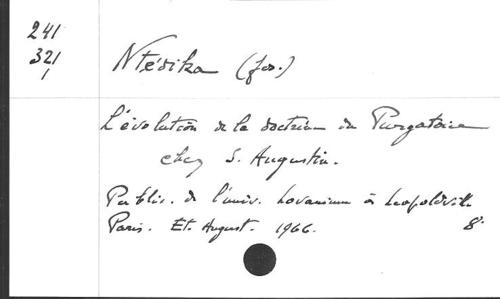 241
321
1
Ntédika (Jos.)
L'évolution de la doctrine du Purgatoire
chez S. Augustin.
Public. de l'univ. Lovanium à Leopoldville
Paris. Et. August. 1966. 8°